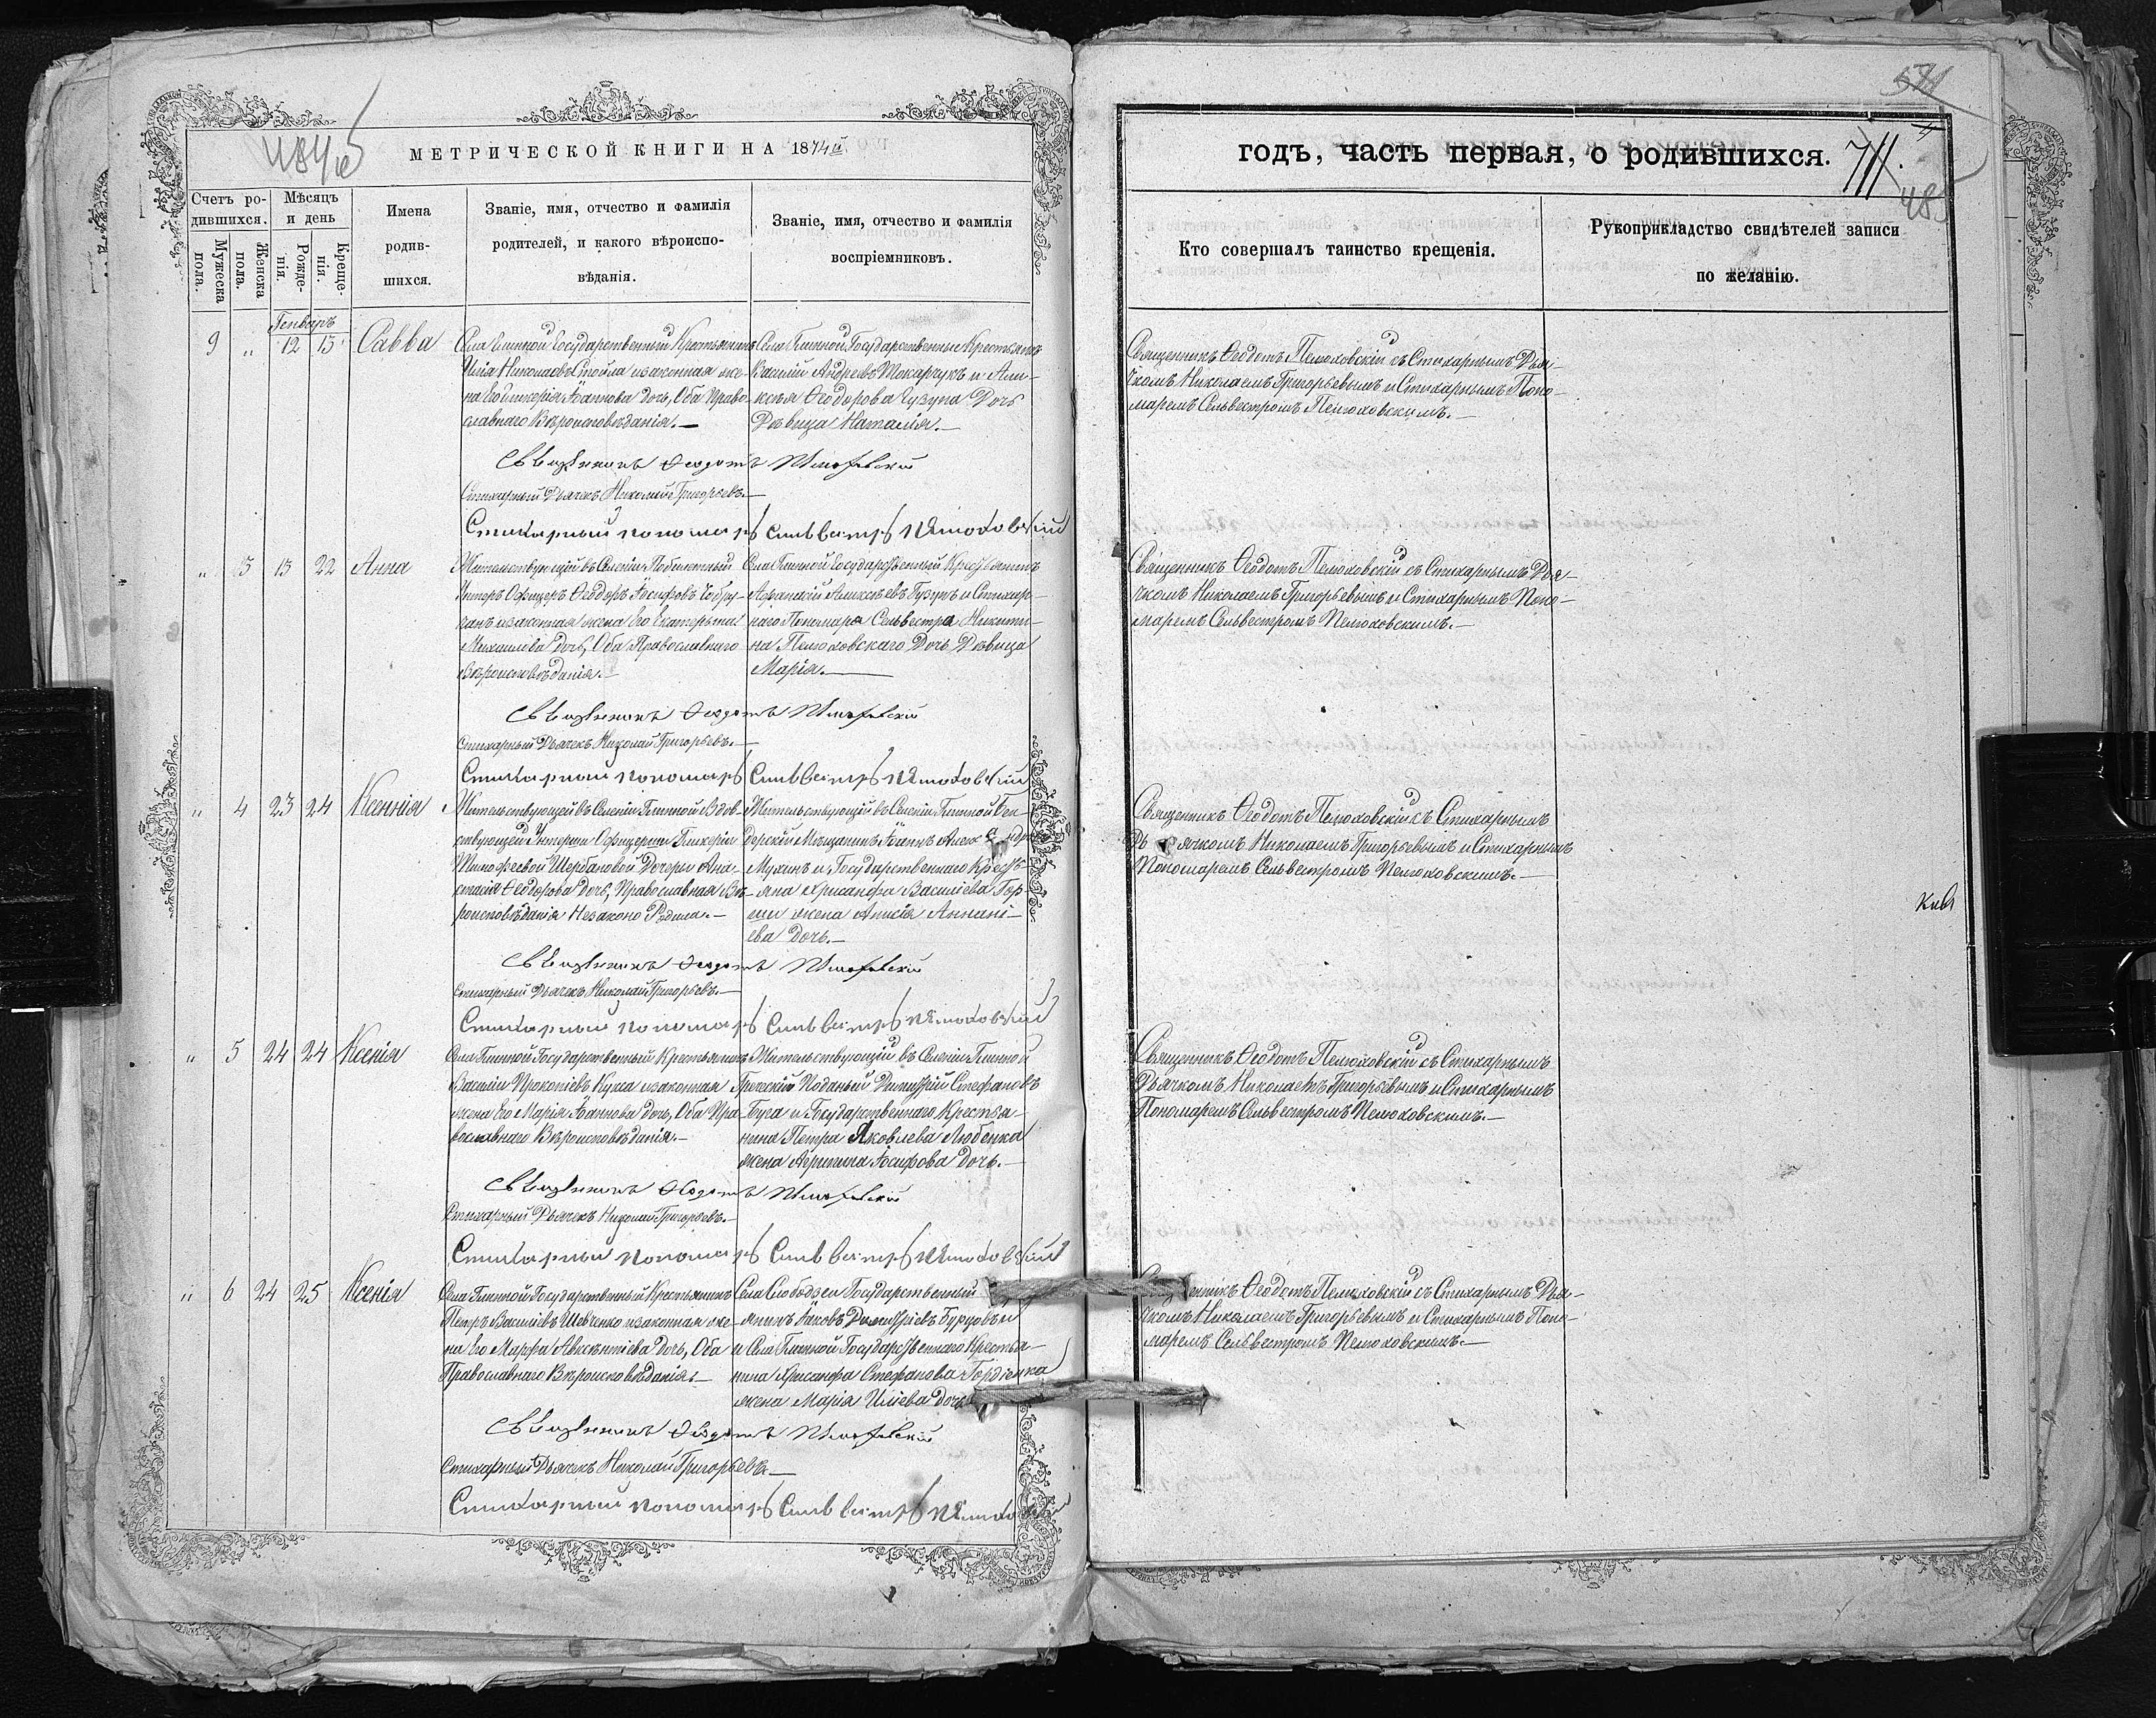 484 об
МЕТРИЧЕСКОЙ КНИГИ НА 1874й
Счетъ родившихся.
Мѣсяцъ и день
Мужеска пола.
Женска пола.
Рожденія.
Крещенія.
Имена
родив-
шихся.
Званіе, имя, отчество и фамилія
родителей, и какого вѣроиспо-
вѣданія.
Званіе, имя, отчество и фамилія
воспріемниковъ.
Генварь
9 „ 12 13 Савва
Села Глинной Государственный Крестьянинъ
Илія Николаевъ Стойла и законная же-
на Его Гликерія Іоаннова дочь, Оба Право-
славнаго Вѣроисповѣданія.—
Села Глинной Государственные Крестьянинъ
Василій Андреевъ Токарчукъ и Але-
ксѣя Ѳеодорова Гузуна Дочь
Дѣвица Наталія.—
Священникъ Ѳеодотъ Пелюховскій
Стихарный Дьячекъ Николай Григорьевъ.—
Стихарный пономарь Сильвестръ Пелюховский
„ 3 13 22 Анна
Жительствующій въ Селеніи Глинной
Унтеръ Офицеръ Ѳеодоръ Іосифовъ
и законная жена Его Екатерина
Михаилова дочь, Оба Православнаго
Вѣроисповѣданія.—
Села Глинной Государственный Крестьянинъ
Афанасій Алексѣевъ Гузунъ и Стихар-
наго Пономаря Сельвестра Никити-
на Пелюховскаго Дочь Дѣвица
Марія.—
Священникъ Ѳеодотъ Пелюховскій
Стихарный Дьячекъ Николай Григорьевъ.—
Стихарный пономарь Сильвестръ Пелюховский
„ 4 23 24 Ксеннія
Жительствующей въ Селеніи Глинной Вдов-
ствующей Унтеръ Офицерши Гликеріи
Тимофеевой Щербановой Дочери Ана-
стасія Ѳеодорова дочь, Православная Вѣ-
роисповѣданія Незаконо Родила.—
Жительствующій въ Селеніи Глинной Бен-
дерскій Мѣщанинъ Іоаннъ
Мухинъ и Государственнаго Кресть-
яна Хрисанфа Васильева Гор-
жена Анисія Аннані-
ева дочь.—
Священникъ Ѳеодотъ Пелюховскій
Стихарный Дьячекъ Николай Григорьевъ.—
Стихарный пономарь Сильвестръ Пелюховский
„ 5 24 24 Ксенія
Села Глинной Государственный Крестьянинъ
Василій Прокопіевъ Кукса и законная
жена Его Марія Іоаннова дочь, Оба Пра-
вославнаго Вѣроисповѣданія.—
Жительствующій въ Селеніи Глинной
Греческій Поданый Димитрій Стефановъ
Буга и Государственнаго Крестья-
нина Петра Яковлева Любенка
жена Агрипина Іосифова дочь.—
Священникъ Ѳеодотъ Пелюховскій
Стихарный Дьячекъ Николай Григорьевъ.—
Стихарный пономарь Сильвестръ Пелюховский
„ 6 24 25 Ксенія
Села Глинной Государственный Крестьянинъ
Петръ Васильевъ Шевченко и законная же-
на Его Марфа Авксентіева дочь, Оба
Православнаго Вѣроисповѣданія.—
Села Слободзеи Государственный
янинъ Іаковъ Димитріевъ Бурцовъ и
и Села Глинной Государственнаго Крестья-
нина Хрисанфа Стефанова Гордіенка
жена Марія Иліева дочь
Священникъ Ѳеодотъ Пелюховскій
Стихарный Дьячекъ Николай Григорьевъ.—
Стихарный пономарь Сильвестръ
годъ, часть первая, о родившихся.
485
Кто совершалъ таинство крещенія.
Рукоприкладство свидѣтелей записи
по желанію.
Священникъ Ѳеодотъ Пелюховскій съ Стихарнымъ Дья-
чкомъ Николаемъ Григорьевымъ и Стихарнымъ Поно-
маремъ Сельвестромъ Пелюховскимъ.—
Священникъ Ѳеодотъ Пелюховскій съ Стихарнымъ Дья-
чкомъ Николаемъ Григорьевымъ и Стихарнымъ Поно-
маремъ Сельвестромъ Пелюховскимъ.—
Священникъ Ѳеодотъ Пелюховскій съ Стихарнымъ
Дьячкомъ Николаемъ Григорьевымъ и Стихарнымъ
Пономаремъ Сельвестромъ Пелюховскимъ.—
Священникъ Ѳеодотъ Пелюховскій съ Стихарнымъ
Дьячкомъ Николаемъ Григорьевымъ и Стихарнымъ
Пономаремъ Сельвестромъ Пелюховскимъ.—
Ѳеодотъ Пелюховскій съ Стихарнымъ Дья-
чкомъ Николаемъ Григорьевымъ и Стихарнымъ Поно-
маремъ Сельвестромъ Пелюховскимъ.—